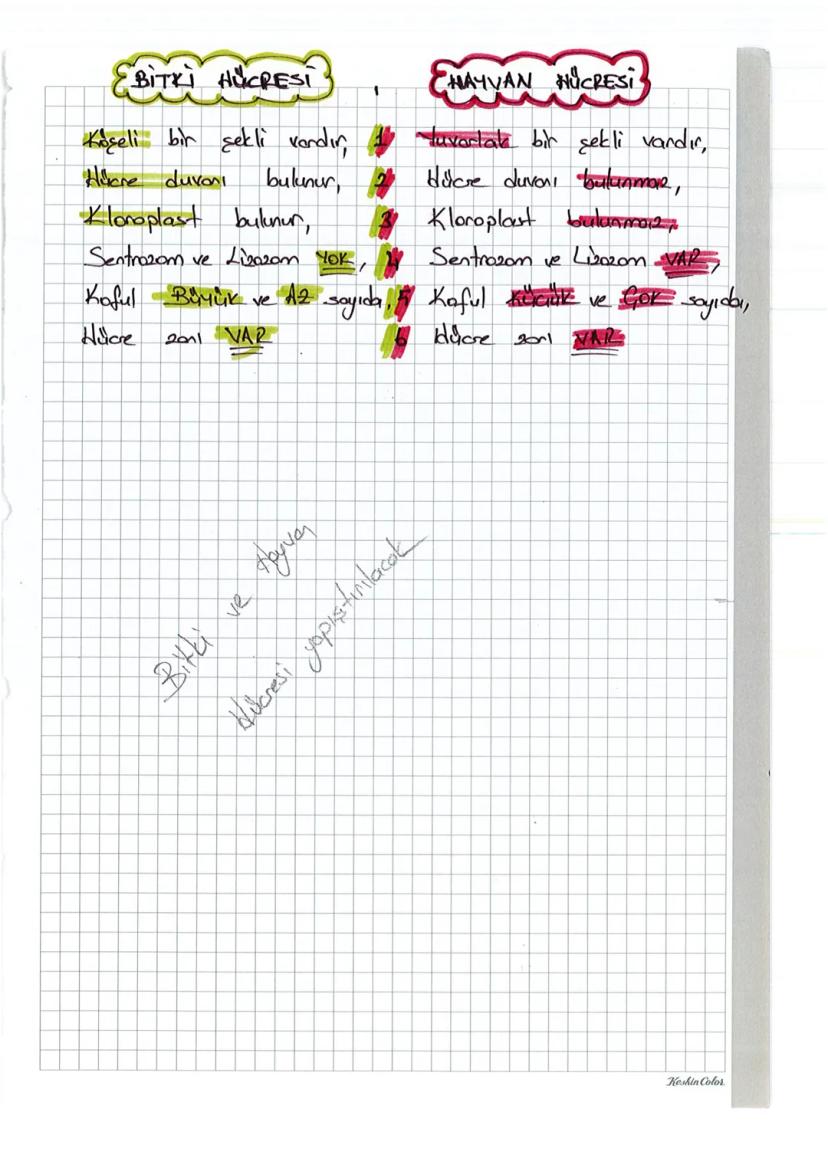 BİTKİ HÜCRESİ HAYVAN HÜCRESİ
Köşeli bir şekli vardır, 1 Yuvarlak bir şekli vardır,
Hücre duvarı bulunur, 2 Hücre duvarı bulunmaz,
Kloroplast bulunur, 3 Kloroplast bulunmaz,
Sentrozom ve Lizozom YOK, 4 Sentrozom ve Lizozom VAR,
Koful Büyük ve AZ sayıda, 5 Koful Küçük ve ÇOK sayıda,
Hücre zarı VAR 6 Hücre zarı VAR
Bitki ve Hayvan
Hücresi yapıştırılacak
KeskinColor